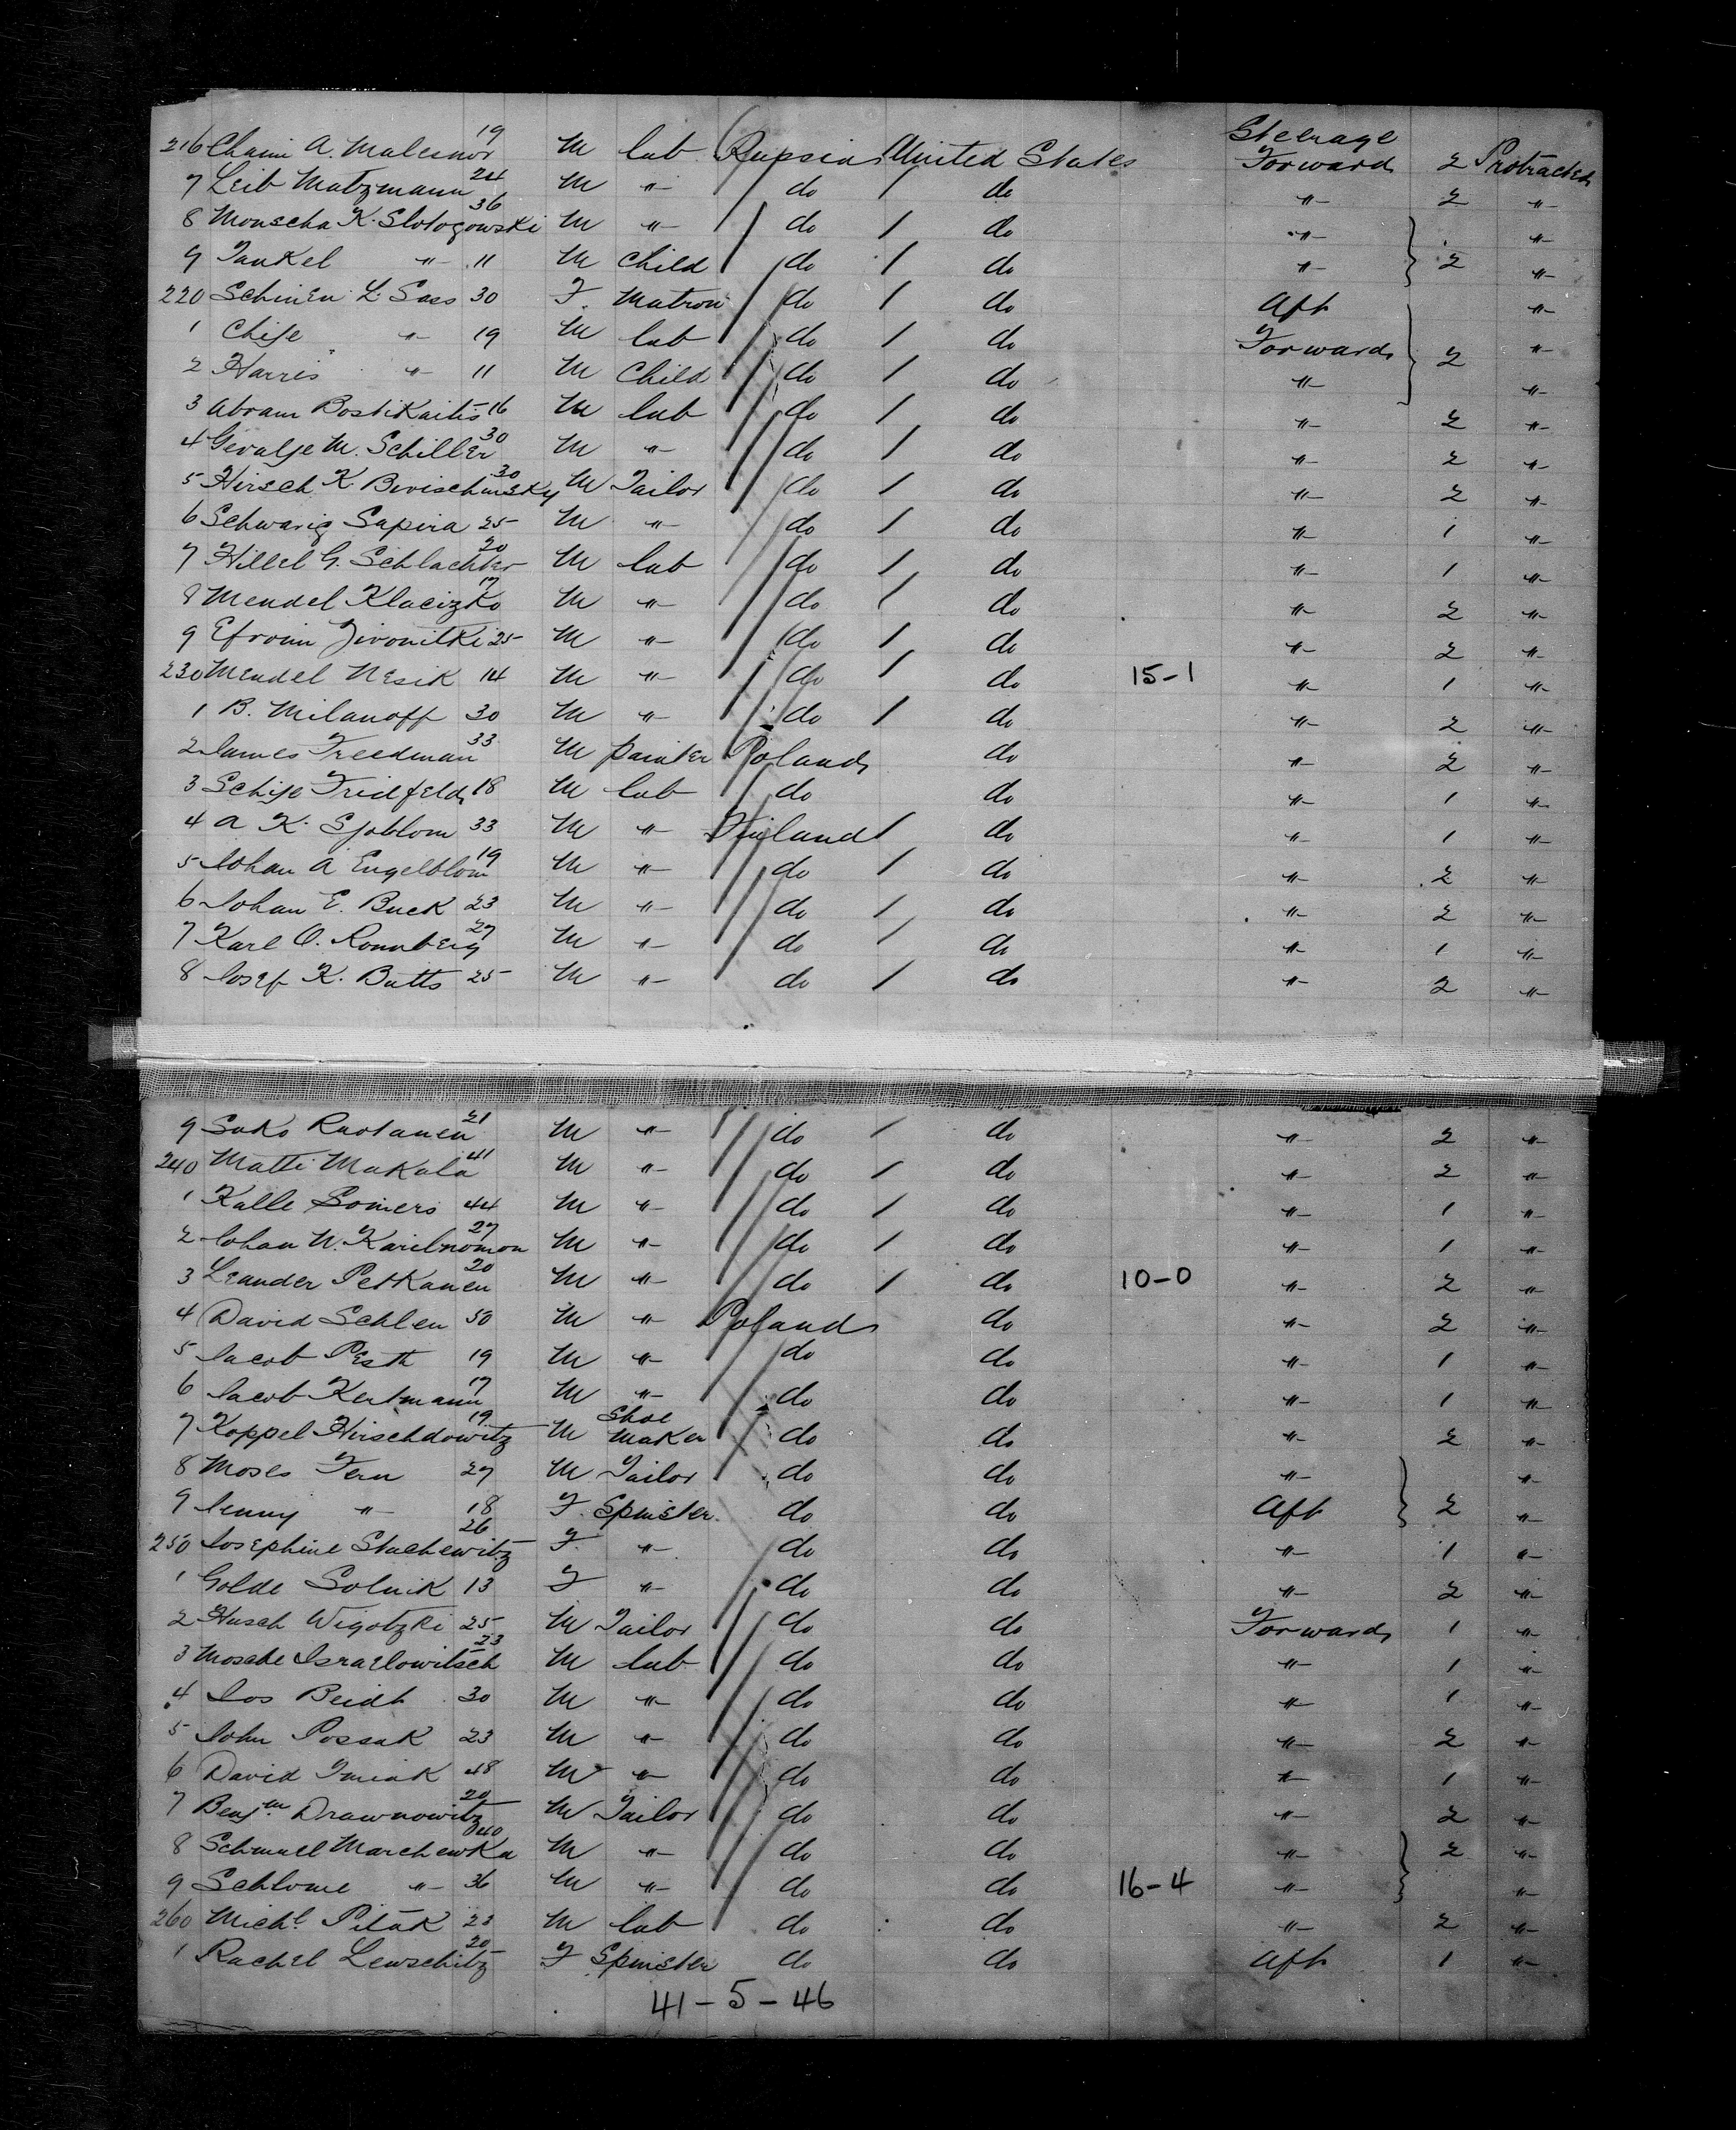 Steerage
216 Chaim A. Malesnor 19 M lab Russia United States Forward 2 Protracted
7 Leib Matzmann 24 M " do do " 2 "
8 Monscha K. Slotogowski 36 M " do do " "
9 Jankel " 11 M Child do do " 2 "
220 L. Sass 30 F. Matron do do Aft "
1 Chise " 19 M lab do do Forward 2 "
2 Harris " 11 M Child do do " "
3 Abram Bostikaitis 16 M lab do do " 2 "
4 M. Schiller 30 M " do do " 2 "
5 Hirsch K. 30 M Tailor do do " 2 "
6 Schwarig Sapira 25 M " do do " 1 "
7 Hillel G. Schlachter 20 M lab do do " 1 "
8 Mendel Klacizko 17 M " do do " 2 "
9 Efroim Zivonitki 25 M " do do " 2 "
230 Mendel Nesik 14 M " do do 15-1 " 1 "
1 B. Milanoff 30 M " do do " 2 "
2 James Freedman 33 M painter Poland do " 2 "
3 Schije Fridfeld 18 M lab do do " 1 "
4 A K. Sjoblom 33 M " Finland do " 1 "
5 Johan A Engelblom 19 M " do do " 2 "
6 Johan E. Buck 23 M " do do " 2 "
7 Karl O. Ronnberg 27 M " do do " 1 "
8 Josef K. Butts 25 M " do do " 2 "
9 Sako Rautanen 21 M " do do " 2 "
240 Matti Makala 41 M " do do " 2 "
1 Kalle Somers 44 M " do do " 1 "
2 Johan W. Karilnomon 27 M " do do " 1 "
3 Leander Petkanen 20 M " do do 10-0 " 2 "
4 David Schlen 50 M " Poland do " 2 "
5 Jacob Pesth 19 M " do do " 1 "
6 Jacob Kertmann 17 M " do do " 1 "
7 Koppel Hirschdowitz 19 M Shoe Maker do do " 2 "
8 Moses Fern 27 M Tailor do do " "
9 Jenny " 18 F. Spinster do do Aft 2 "
250 Josephine Stachewitz 26 F. " do do " 1 "
1 Golde Solnik 13 F " do do " 2 "
2 Husch Wigotzki 25 M Tailor do do Forward 1 "
3 Mosche Israelowitsch 23 M lab do do " 1 "
4 Jos Beidt 30 M " do do " 1 "
5 John Possak 23 M " do do " 2 "
6 David 48 M " do do " 1 "
7 Benjm Drawnowitz 20 M Tailor do do " 2 "
8 Schmuel Marchewka 40 M " do do " 2 "
9 Schlome " 36 M " do do 16-4 " "
260 Michl Pitak 23 M lab do do " 2 "
1 Rachel Lewschitz 20 F Spinster do do Aft 1 "
41-5-46